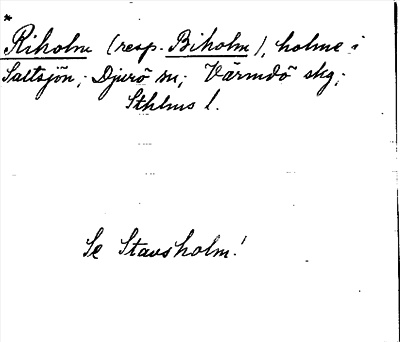 *
Riholm (resp. Biholm), holme i
Saltsjön; Djurö sn; Värmdö skg;
Sthlms l.
Se Stavsholm!